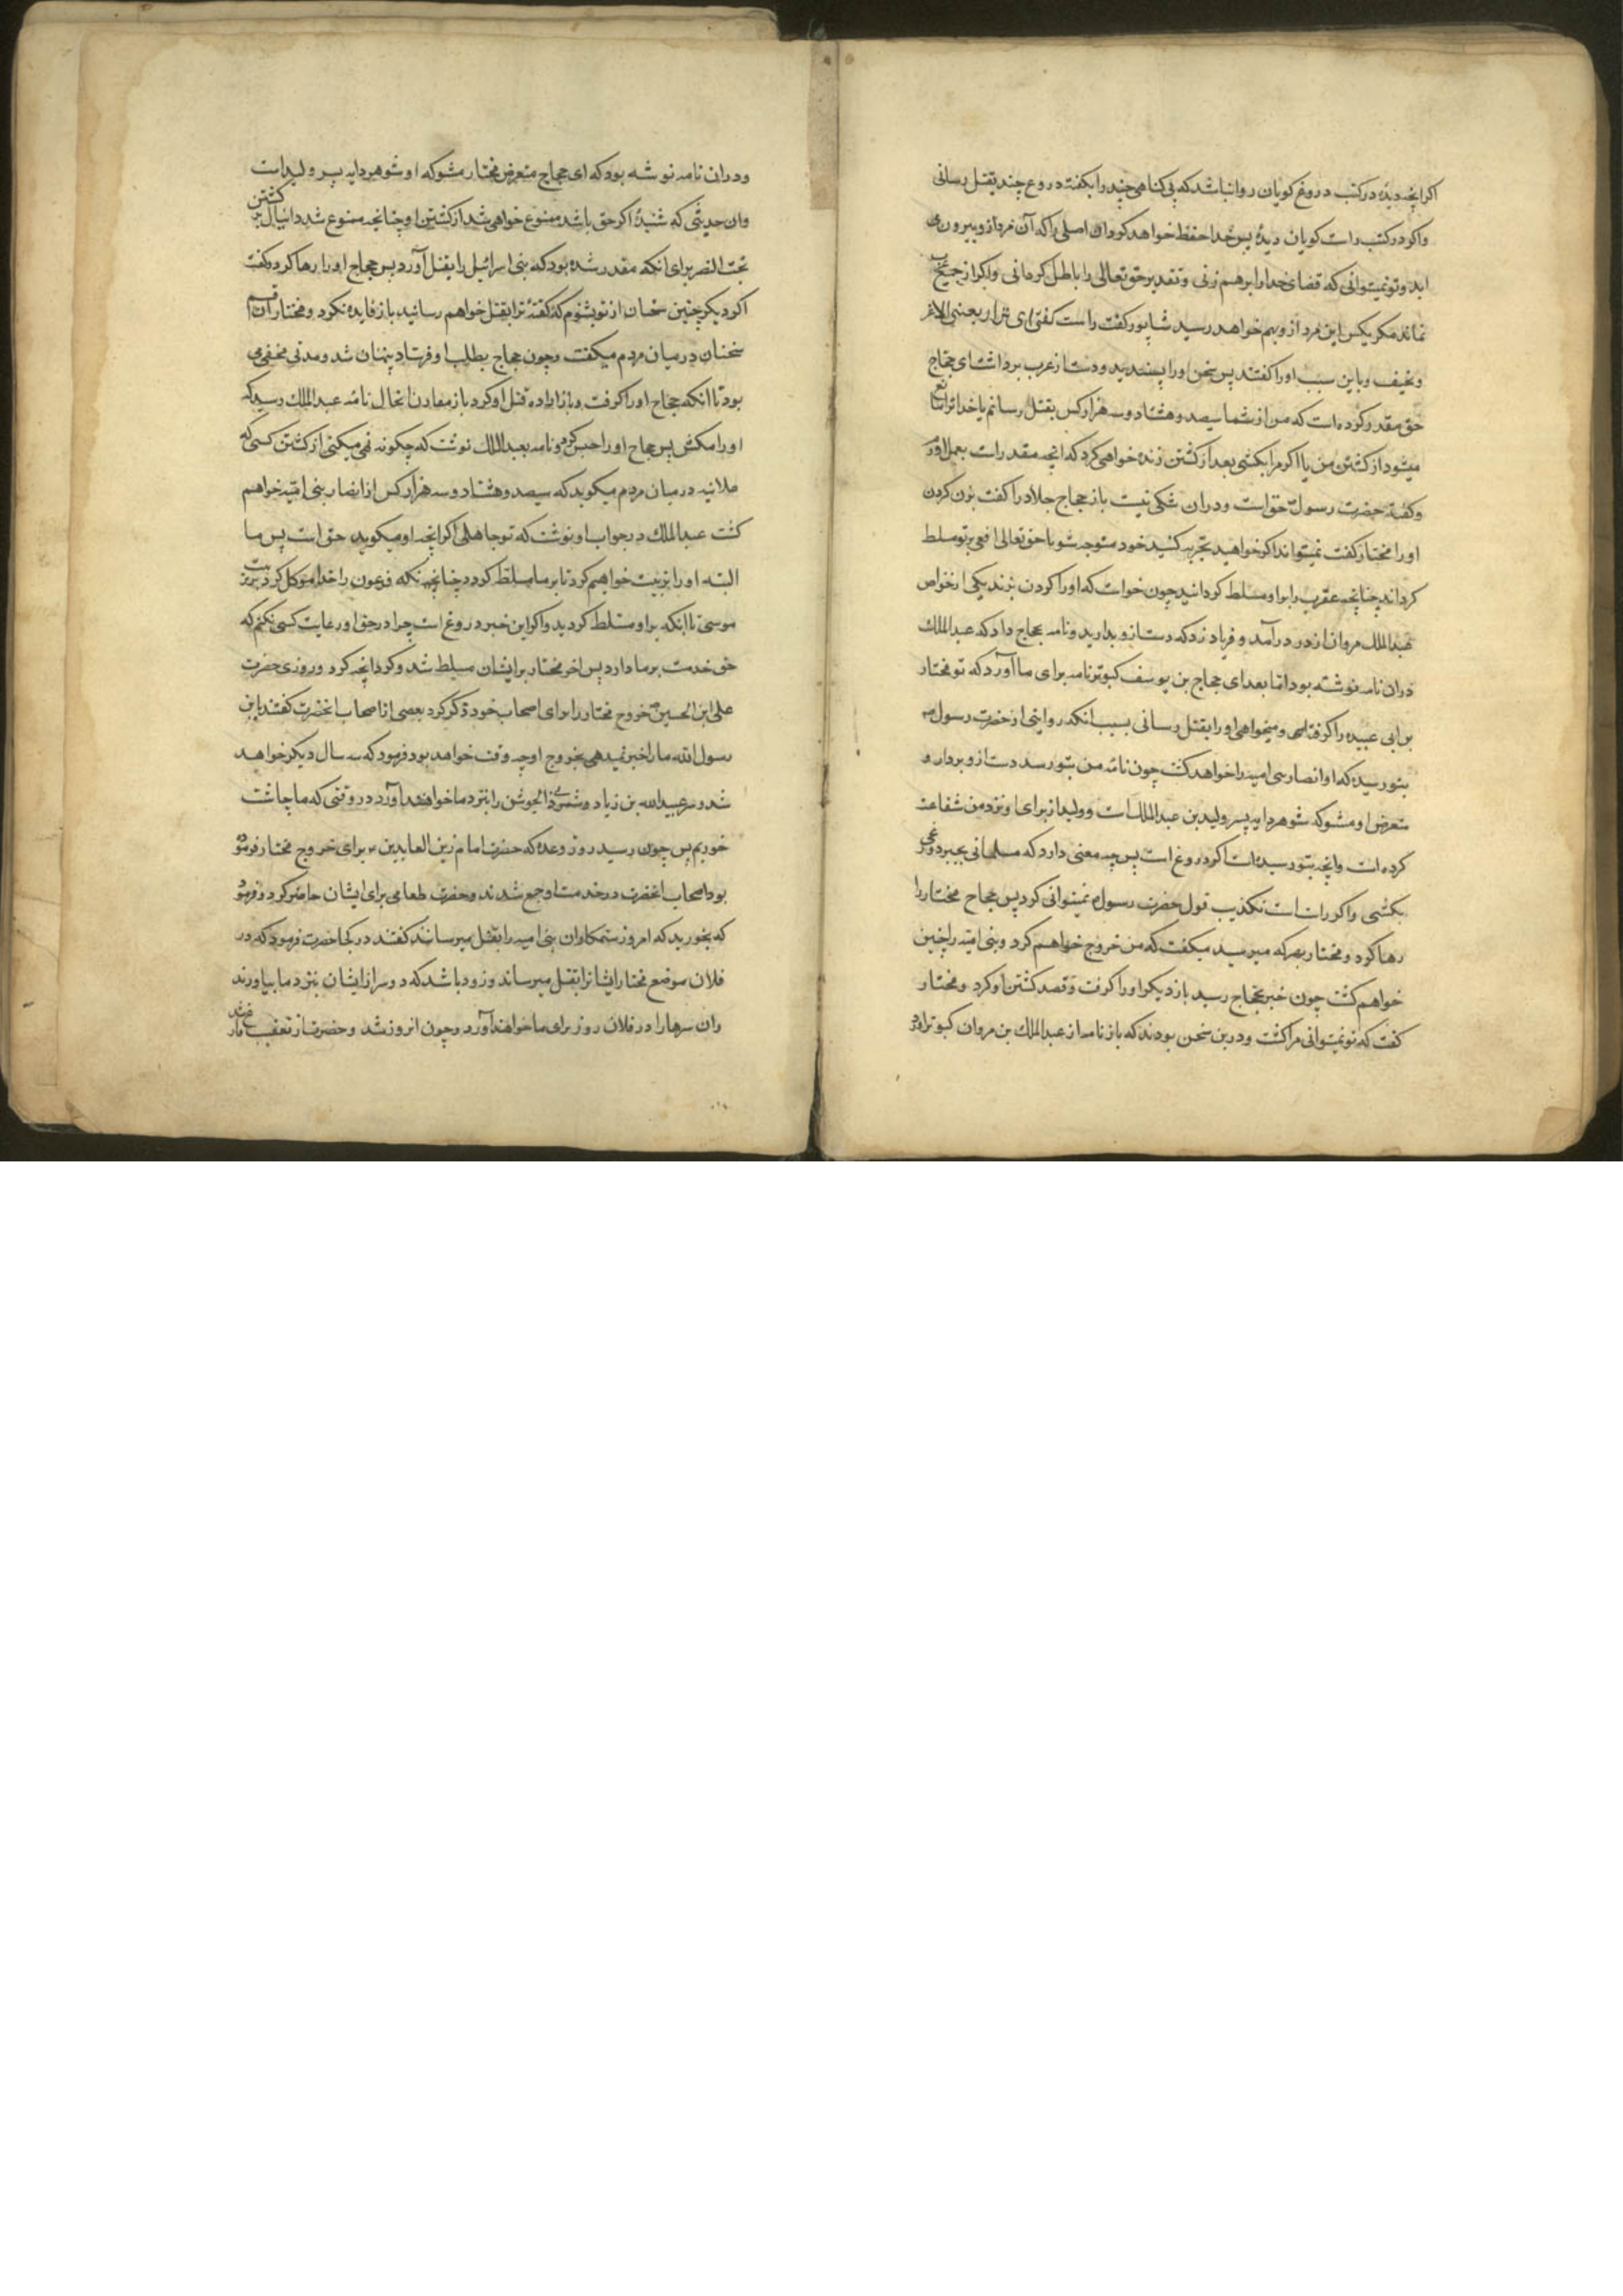 اگر آنچه دیدهٔ در کتب دروغ گویان روا نباشد که بی گناهی چند را بگفته دروغ چند بقتل رسانی
و اگر در کتب راست گویان دیدهٔ پس خدا حفظ خواهد کرد آن اصلی را که آن مرد از او بیرون می
آید و تو نمیتوانی که قضای خدا را برهم زنی و تقدیر حق تعالی را باطل گردانی و اگر از جمیع عرب
نماند مگر یکس این مرد ازو بهم خواهد رسید شاپور گفت راست گفتی ای نزار یعنی لاغر
و نحیف و باین سبب او را گفتند پس سخن او را پسندید و دست از عرب برداشت ای حجاج
حق مقدر کرده است که من از شما سیصد و هشتاد و سه هزار کس بقتل رسانم یا خدا ترا مانع
میشود از کشتن من یا اگر مرا بکشی بعد از کشتن زنده خواهی کرد که آنچه مقدر است بعمل آورم
و گفته حضرت رسول حق است و در آن شکی نیست باز حجاج جلاد را گفت بزن گردن
او را مختار گفت نمیتواند اگر خواهید تجربه کنید خود متوجه شو تا حق تعالی افعی بر تو مسلط
گرداند چنانچه عقرب را بر او مسلط گردانید چون خواست که او را گردن بزند یکی از خواص
عبدالملک مروان از در درآمد و فریاد زد که دست ازو بدارید و نامه بحجاج داد که عبدالملک
در آن نامه نوشته بود اما بعد ای حجاج بن یوسف کبوتر نامه برای ما آورد که تو مختار
بن ابی عبیده را گرفتهٔ و میخواهی او را بقتل رسانی بسبب آنکه روایتی از حضرت رسول ص
بتو رسیده که او انصار بنی امیه را خواهد کشت چون نامهٔ من بتو رسد دست از و بردار و
متعرض او مشو که شوهر دایه پسر ولید بن عبدالملک است و ولید از برای او نزد من شفاعت
کرده است و آنچه بتو رسیده است اگر دروغ است پس چه معنی دارد که مسلمانی بخبر دروغی
بکشی و اگر راست است تکذیب قول حضرت رسول نمیتوانی کرد پس حجاج مختار را
رها کرد و مختار بهر که میرسید میگفت که من خروج خواهم کرد و بنی امیه را چنین
خواهم کشت چون خبر بحجاج رسید باز دیگر او را گرفت و قصد کشتن او کرد و مختار
گفت که تو نمیتوانی مرا کشت و درین سخن بودند که باز نامه از عبدالملک بن مروان کبوتر آورد
و در آن نامه نوشته بود که ای حجاج متعرض مختار مشو که او شوهر دایه پسر ولید است
و آن حدیثی که شنیدهٔ اگر حق باشد ممنوع خواهی شد از کشتن او چنانچه ممنوع شد دانیال از کشتن
بخت النصر برای آنکه مقدر شده بود که بنی اسرائیل را بقتل آورد پس حجاج او را رها کرد و گفت
اگر دیگر چنین سخنان از تو بشنوم که گفتهٔ ترا بقتل خواهم رسانید باز فایده نکرد و مختار آن قسم
سخنان در میان مردم میگفت و چون حجاج بطلب او فرستاد پنهان شد و مدتی مخفی
بود تا آنکه حجاج او را گرفت و باز اراده قتل او کرد باز مقارن آن حال نامهٔ عبدالملک رسید که
او را مکش پس حجاج او را حبس کرد و نامه بعبدالملک نوشت که چگونه نهی میکنی از کشتن کسی که
علانیه در میان مردم میگوید که سیصد و هشتاد و سه هزار کس از انصار بنی امیه خواهم
کشت عبدالملک در جواب او نوشت که تو جاهلی اگر آنچه او میگوید حق است پس ما
البته او را تربیت خواهیم کرد تا بر ما مسلط گردد چنانچه فرعون را خدا موکل کرد بتربیت
موسی تا آنکه بر او مسلط گردید و اگر این خبر دروغ است چرا در حق او رعایت کسی نکنم که
حق خدمت بر ما دارد پس آخر مختار بر ایشان مسلط شد و کرد آنچه کرد و روزی حضرت
علی ابن الحسین ع خروج مختار را برای اصحاب خود ذکر کرد بعضی از اصحاب آنحضرت گفتند یابن
رسول الله ما را خبر نمیدهی بخروج او چه وقت خواهد بود فرمود که سه سال دیگر خواهد
شد و سر عبیدالله بن زیاد و شمر ذی الجوشن را بنزد ما خواهند آورد در وقتی که ما چاشت
خوریم پس چون رسید روز وعده که حضرت امام زین العابدین ع برای خروج مختار فرموده
بود اصحاب آنحضرت در خدمت او جمع شدند و حضرت طعامی برای ایشان حاضر کرد و فرمود
که بخورید که امروز ستمکاران بنی امیه را بقتل میرسانند گفتند در کجا حضرت فرمود که در
فلان موضع مختار ایشانرا بقتل میرساند و زود باشد که دو سر از ایشان بنزد ما بیاورند
و آن سرها را در فلان روز برای ما خواهند آورد و چون آن روز شد و حضرت از تعقیب فارغ شد